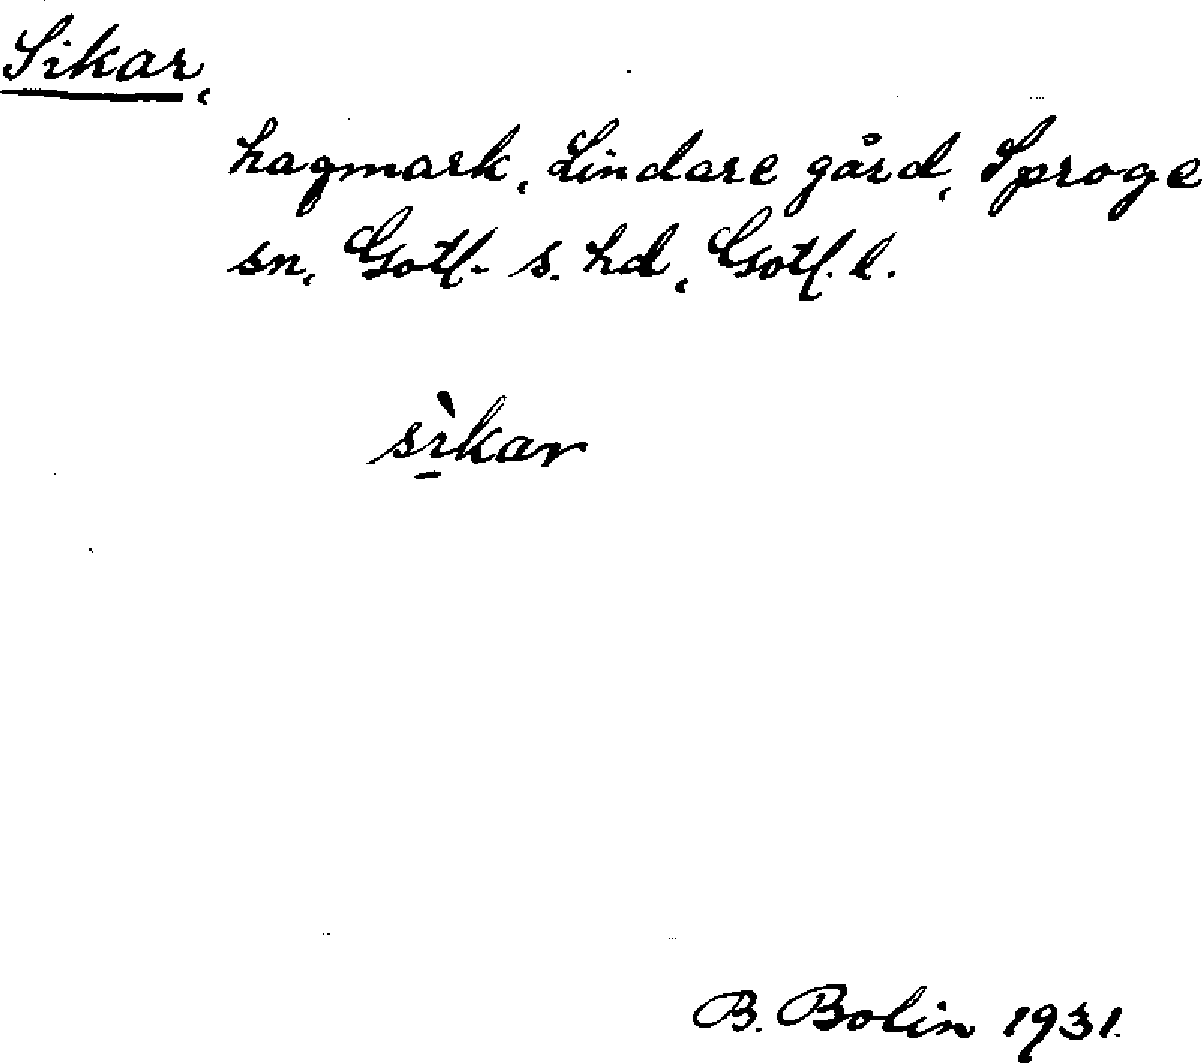 Sikar,
hagmark, Lindare gård, Sproge
sn, Gotl. s. hd, Gotl. l.
sì̠kar
B. Bolin 1931.